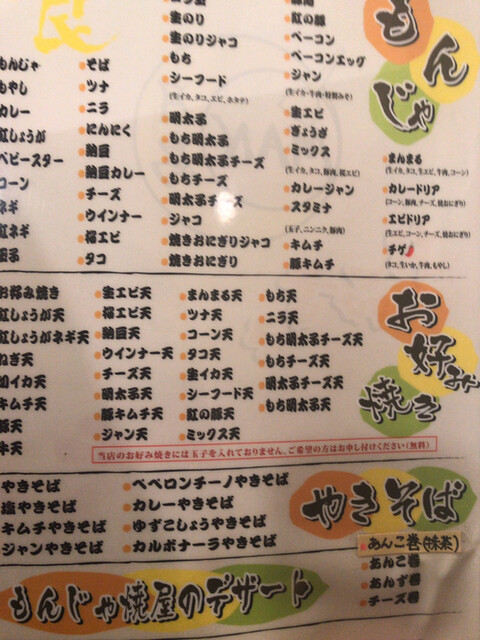 もんじゃ
もんじゃ
もやし
カレー
紅しょうが
ベビースター
コーン
ネギ
紅ネギ
玉子
そば
ツナ
ニラ
にんにく
納豆
納豆カレー
チーズ
ウインナー
桜エビ
タコ
生のり
生のりジャコ
もち
シーフード
(生イカ、タコ、エビ、ホタテ)
明太子
もち明太子
もち明太子チーズ
もちチーズ
明太子チーズ
ジャコ
焼きおにぎりジャコ
焼きおにぎり
紅の豚
ベーコン
ベーコンエッグ
ジャン
(生イカ・牛肉・特製みそ)
生エビ
ぎょうざ
ミックス
(生イカ、タコ、豚肉、桜エビ)
カレージャン
スタミナ
(玉子、ニンニク、豚肉)
キムチ
豚キムチ
まんまる
(生イカ、タコ、生エビ、牛肉、コーン)
カレードリア
(コーン、豚肉、チーズ、焼おにぎり)
エビドリア
(生エビ、コーン、チーズ、焼おにぎり)
チゲ
(タコ、生いか、牛肉、もやし)
お好み焼き
お好み焼き
紅しょうが天
紅しょうがネギ天
ねぎ天
キムチ天
牛天
生エビ天
桜エビ天
納豆天
ウインナー天
チーズ天
明太子天
豚キムチ天
ジャン天
まんまる天
ツナ天
コーン天
タコ天
生イカ天
シーフード天
紅の豚天
ミックス天
もち天
ニラ天
もち明太子チーズ天
もちチーズ天
明太子チーズ天
もち明太子天
当店のお好み焼きには玉子を入れておりません。ご希望の方はお申し付けください(無料)
やきそば
やきそば
塩やきそば
キムチやきそば
ジャンやきそば
ペペロンチーノやきそば
カレーやきそば
ゆずこしょうやきそば
カルボナーラやきそば
もんじゃ焼屋のデザート
あんこ巻(抹茶)
あんこ巻
あんず巻
チーズ巻